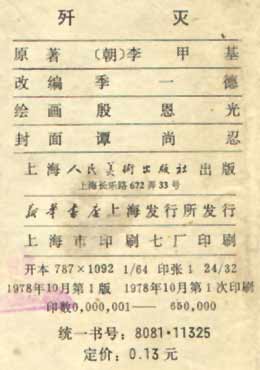 歼 灭
原 著 (朝)李 甲 基
改 编 季 一 德
绘 画 殷 恩 光
封 面 谭 尚 忍
上海人民美術出版社 出版
上海长乐路 672 弄 33 号
新华書店上海发行所发行
上海市印刷七厂印刷
开本 787×1092 1/64 印张 1 24/32
1978年10月第1版 1978年10月第1次印刷
印数0,000,001—— 650,000
统一书号：8081·11325
定价：0.13 元